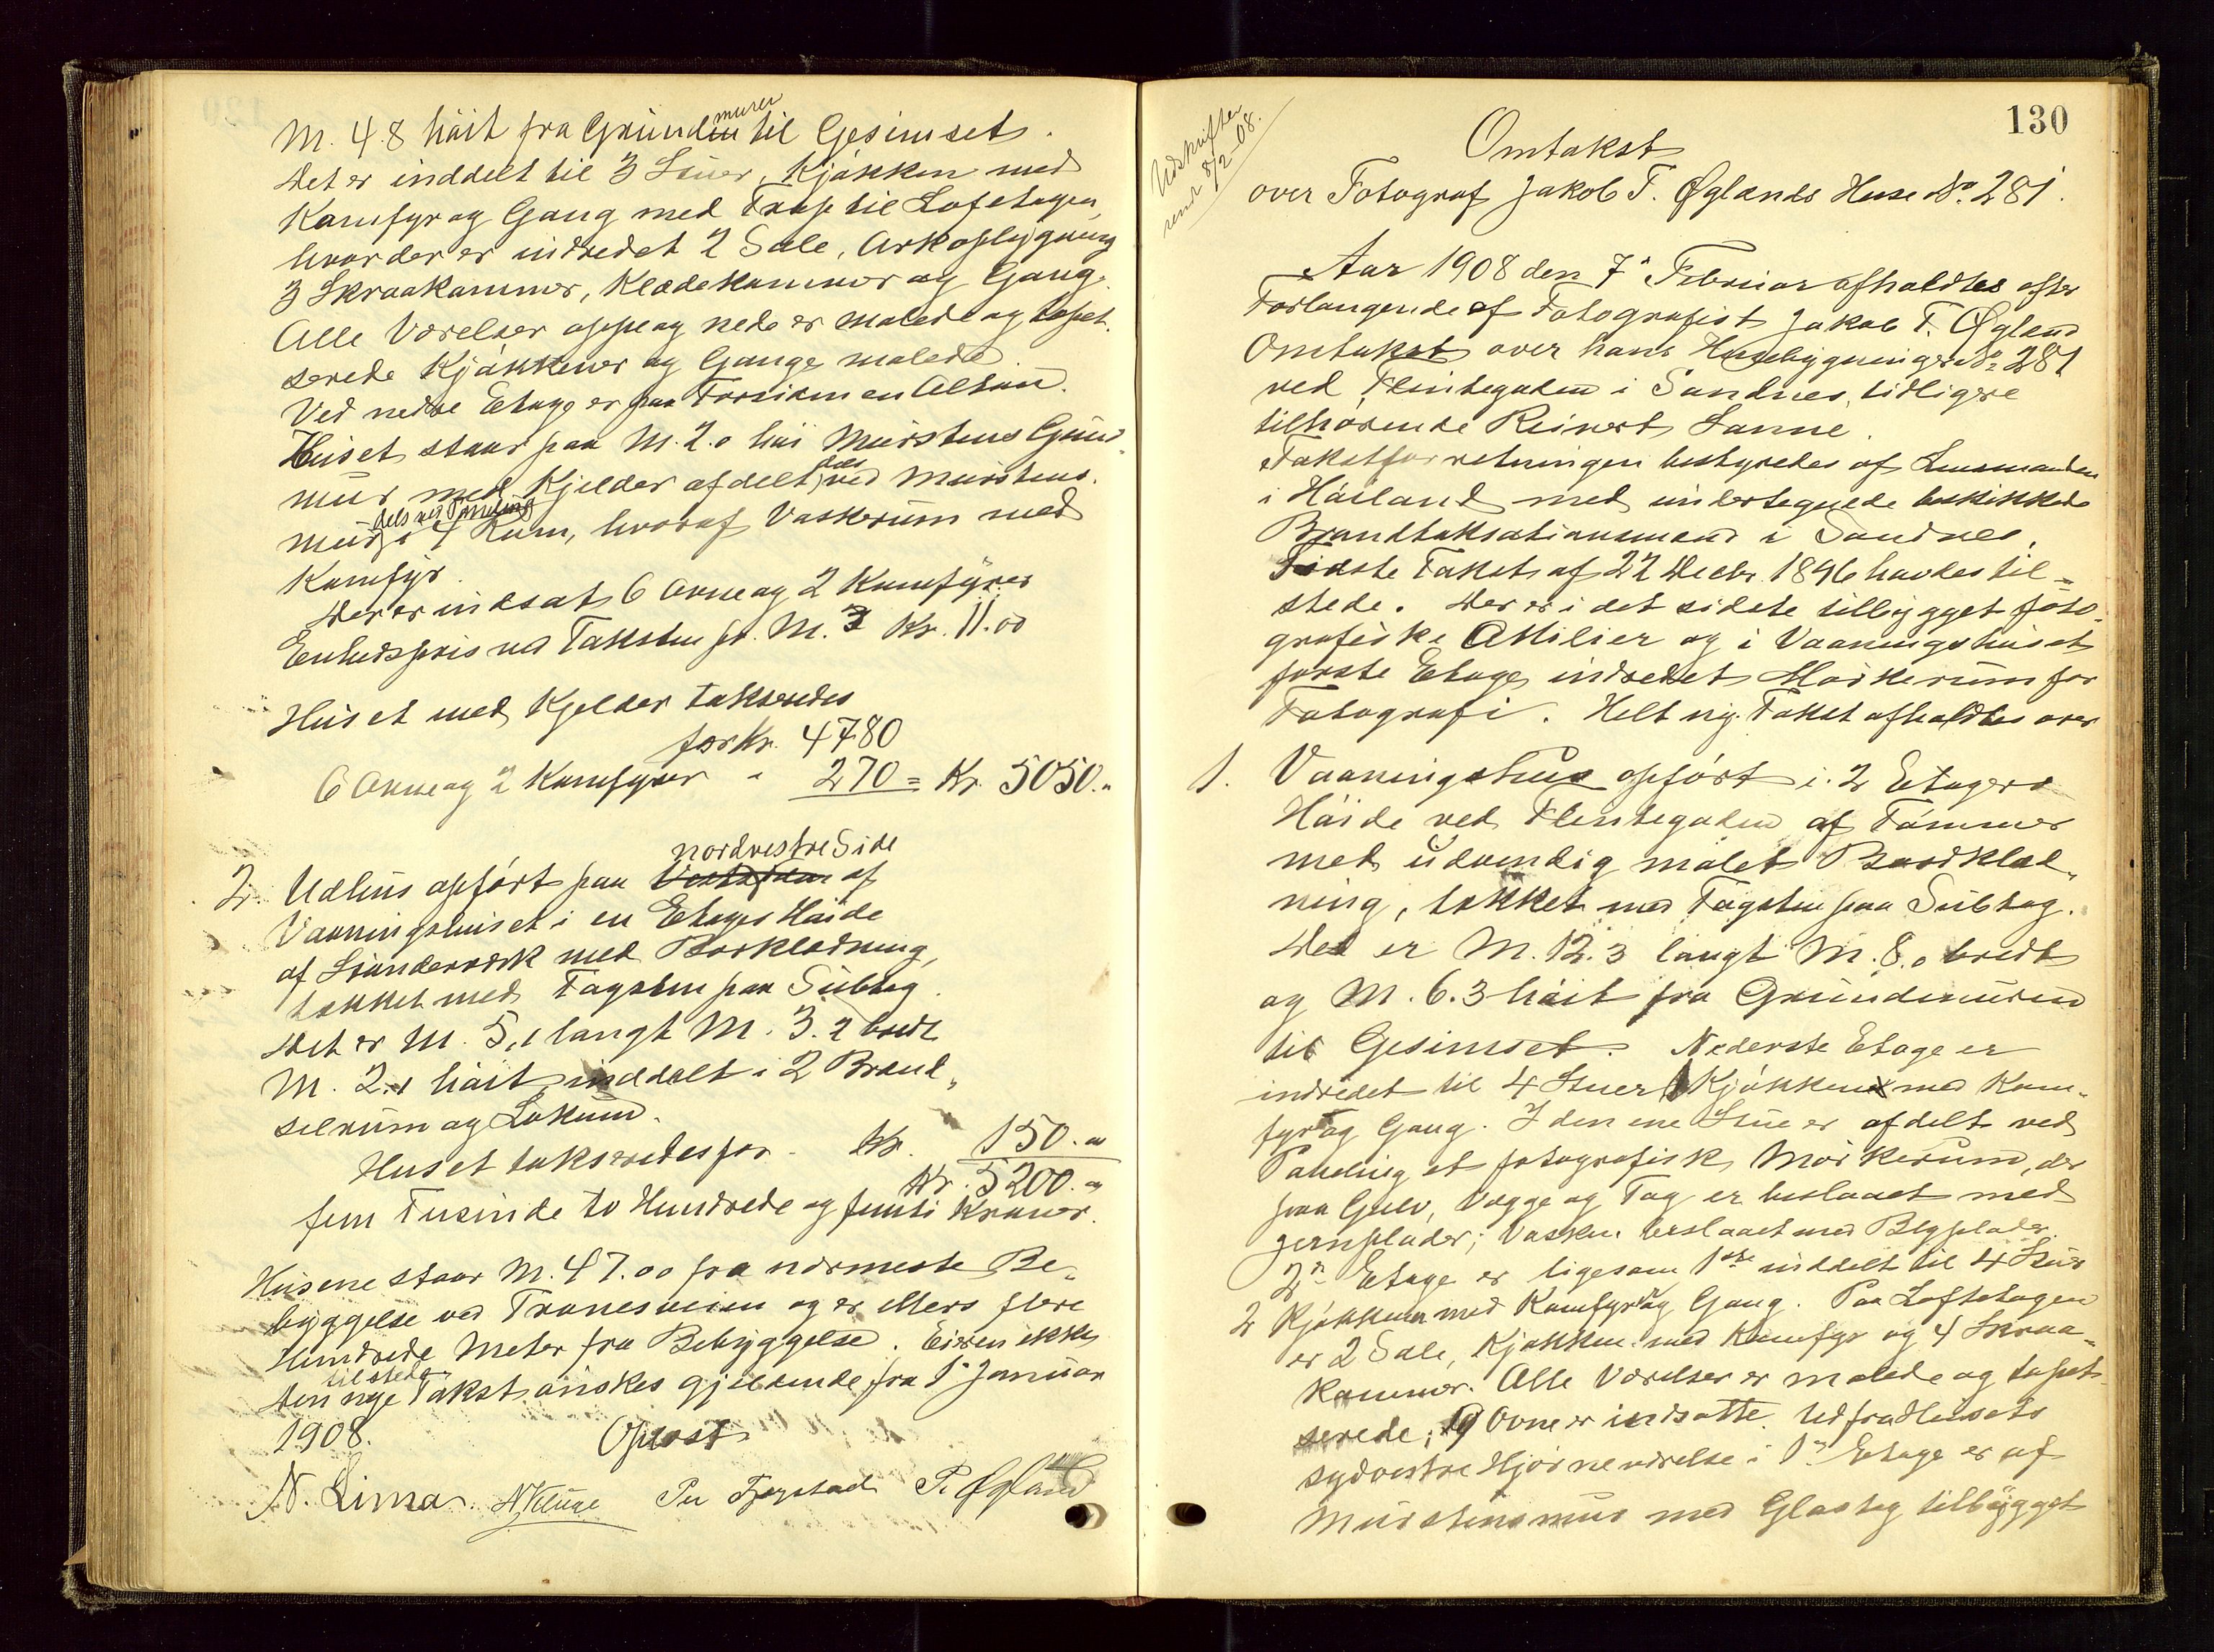 M. 4.8 høit fra Grundmuren til Gesimset.
Det er inddelt til 3 Stuer, Kjøkken med
Komfyr og Gang med Trap til Loftetagen,
hvor der er indredet 2 Sale, Arkopbygning
3 Skraakammer, Klædekammer og Gang.
Alle Værelser oppe og nede er malede og tapet-
serede Kjøkkener og Gange malede.
Ved nedre Etage er paa Forsiden en Altan.
Huset staar paa M. 2.0 høi Murstens Grund-
mur med Kjelder afdelt dels ved Murstens-
mur dels ved Paneling i 4 Rum, hvoraf Vaskerum med
Komfyr.
Der er indsat 6 Ovne og 2 Komfyrer
Enhedspris ved Taksten pr. M.3 Kr. 11.00
Huset med Kjelder takseredes
for Kr. 4780
6 Ovne og 2 Komfyrer " 270 = Kr. 5050."
nordvestre Side
2. Udhus opført paa af
Vaaningshuset i en Etages Høide
af Stænderværk med Bordklædning,
tækket med Tagsten paa Subtag.
Det er M. 5.1 langt M. 3.2 bredt
M. 2.1 høit inddelt i 2 Brænd-
selrum og Lokum.
Huset takseredes for Kr. 150."
Kr. 5200."
fem Tusinde to Hundrede og femti Kroner.
Husene staar M. 47.00 fra nærmeste Be-
byggelse ved Tronesveien og er ellers flere
Hundrede Meter fra Bebyggelse. Eieren ikke
tilstede
Den nye Takst ønskes gjældende fra 1' Januar
1908. Oplæst
N. Lima. Per Fjogstad P. Øgland
Udskriften
send 8/2 08.
130
Omtakst
over Fotograf Jakob T. Øglands Huse No. 281.
Aar 1908 den 7' Februar afholdtes efter
Forlangende af Fotografist Jakob T. Øgland
Omtakst over hans Husebygninger No. 281
ved Flintegaden i Sandnes, tidligere
tilhørende Reinert Sanne.
Takstforretningen bestyredes af Lensmanden
i Høiland med undertegnede beskikkede
Brandtaksationsmænd i Sandnes.
Sidste Takst af 22 Decbr. 1896 havdes til-
stede. Der er i det sidste tilbygget foto-
grafiske Attilier og i Vaaningshuset
første Etage indredet Mørkerum for
Fotografi. Helt ny Takst afholdtes over
1. Vaaningshus opført i 2 Etagers
Høide ved Flintegaden af Tømmer
med udvendig malet Bordklæd-
ning, tækket med Tagsten paa Subtag.
Det er M. 12.3 langt M. 8.0 bredt
og M. 6.3 høit fra Grundmuren
til Gesimset. Nederste Etage er
indredet til 4 Stuer 1 Kjøkken med Kom-
fyr og Gang. I den ene Stue er afdelt ved
Paneling et fotografisk Mørkerum, der
paa Gulv, Vægge og Tag er beslaaet med
Jernplader; Vasken beslaaet med Blyplader.
2n Etage er ligesom 1ste inddelt til 4 Stuer
2 Kjøkkener med Komfyr og Gang. Paa Loftetagen
er 2 Sale, Kjøkken med Komfyr og 4 Skraa-
kammer. Alle Værelser er malede og tapet-
serede; 9 Ovne er indsatte. Ud fra Husets
sydvestre Hjørneværelse i 1' Etage er af
Murstensmur med Glastag tilbygget